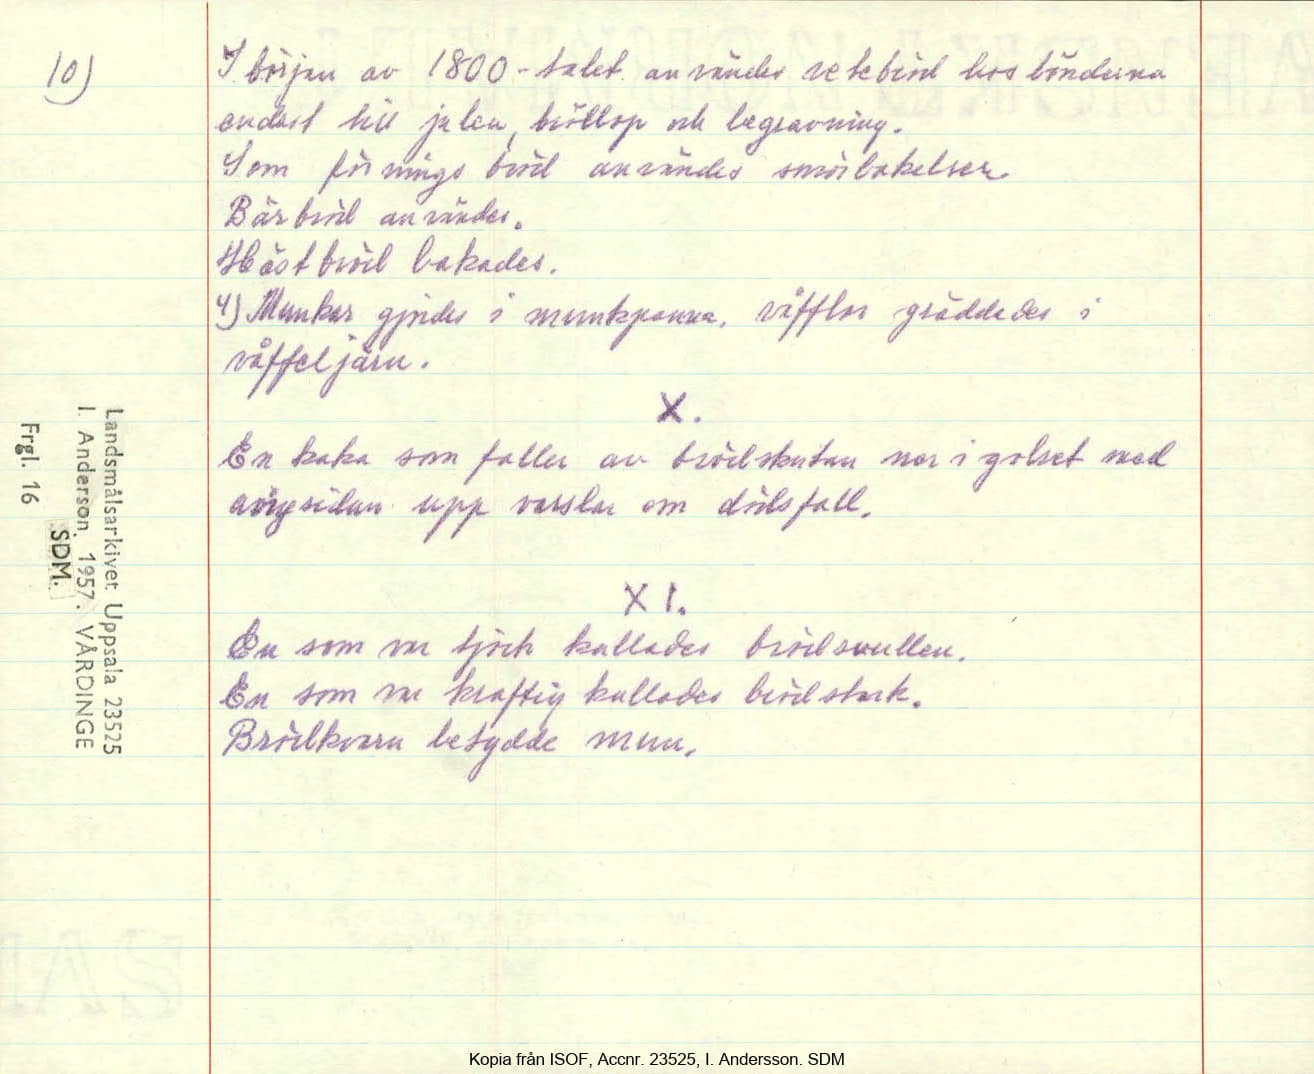 10)
I början av 1800-talet användes vetebröd hos bönderna
endast till julen, bröllop och begravning.
Som förnings bröd användes smörbakelser.
Bärbröd användes.
Höstbröd bakades.
4) Munkar gjordes i munkpanna, våfflor gräddades i
våffeljärn.
X.
En kaka som faller av brödskutan ner i golvet med
avigsidan upp varslar om dödsfall.
XI.
En som var tjock kallades brödsvullen.
En som var kraftig kallades brödstark.
Brödkvarn betydde mun.
Landsmålsarkivet Uppsala 23525
I. Anderson. 1957. VÅRDINGE
SDM.
Frgl. 16
Kopia från ISOF, Accnr. 23525, I. Andersson. SDM